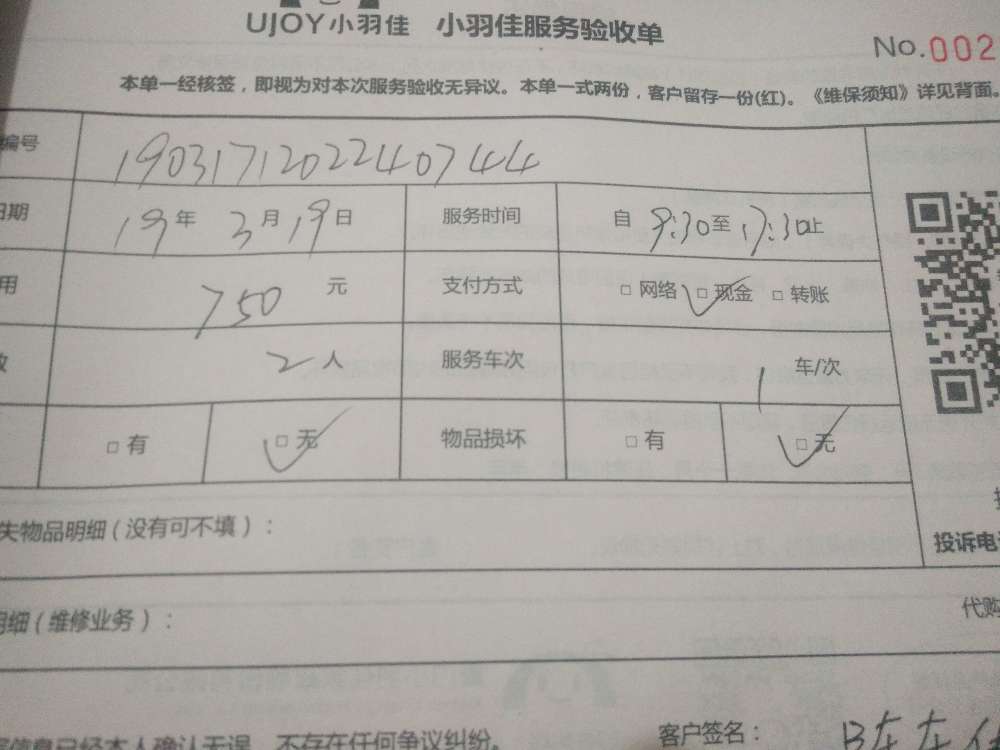 UJOY小羽佳 小羽佳服务验收单
No.002
本单一经核签，即视为对本次服务验收无异议。本单一式两份，客户留存一份(红)。《维保须知》详见背面。
编号 1903171202240744
日期 19年3月19日 服务时间 自9:30至17:30止
用 750元 支付方式 □网络 □现金 □转账
数 2人 服务车次 1车/次
□有 □无 物品损坏 □有 □无
失物品明细(没有可不填)：
投诉电
明细(维修业务)：
代购
客户签名：
信息已经本人确认无误，不存在任何争议纠纷。